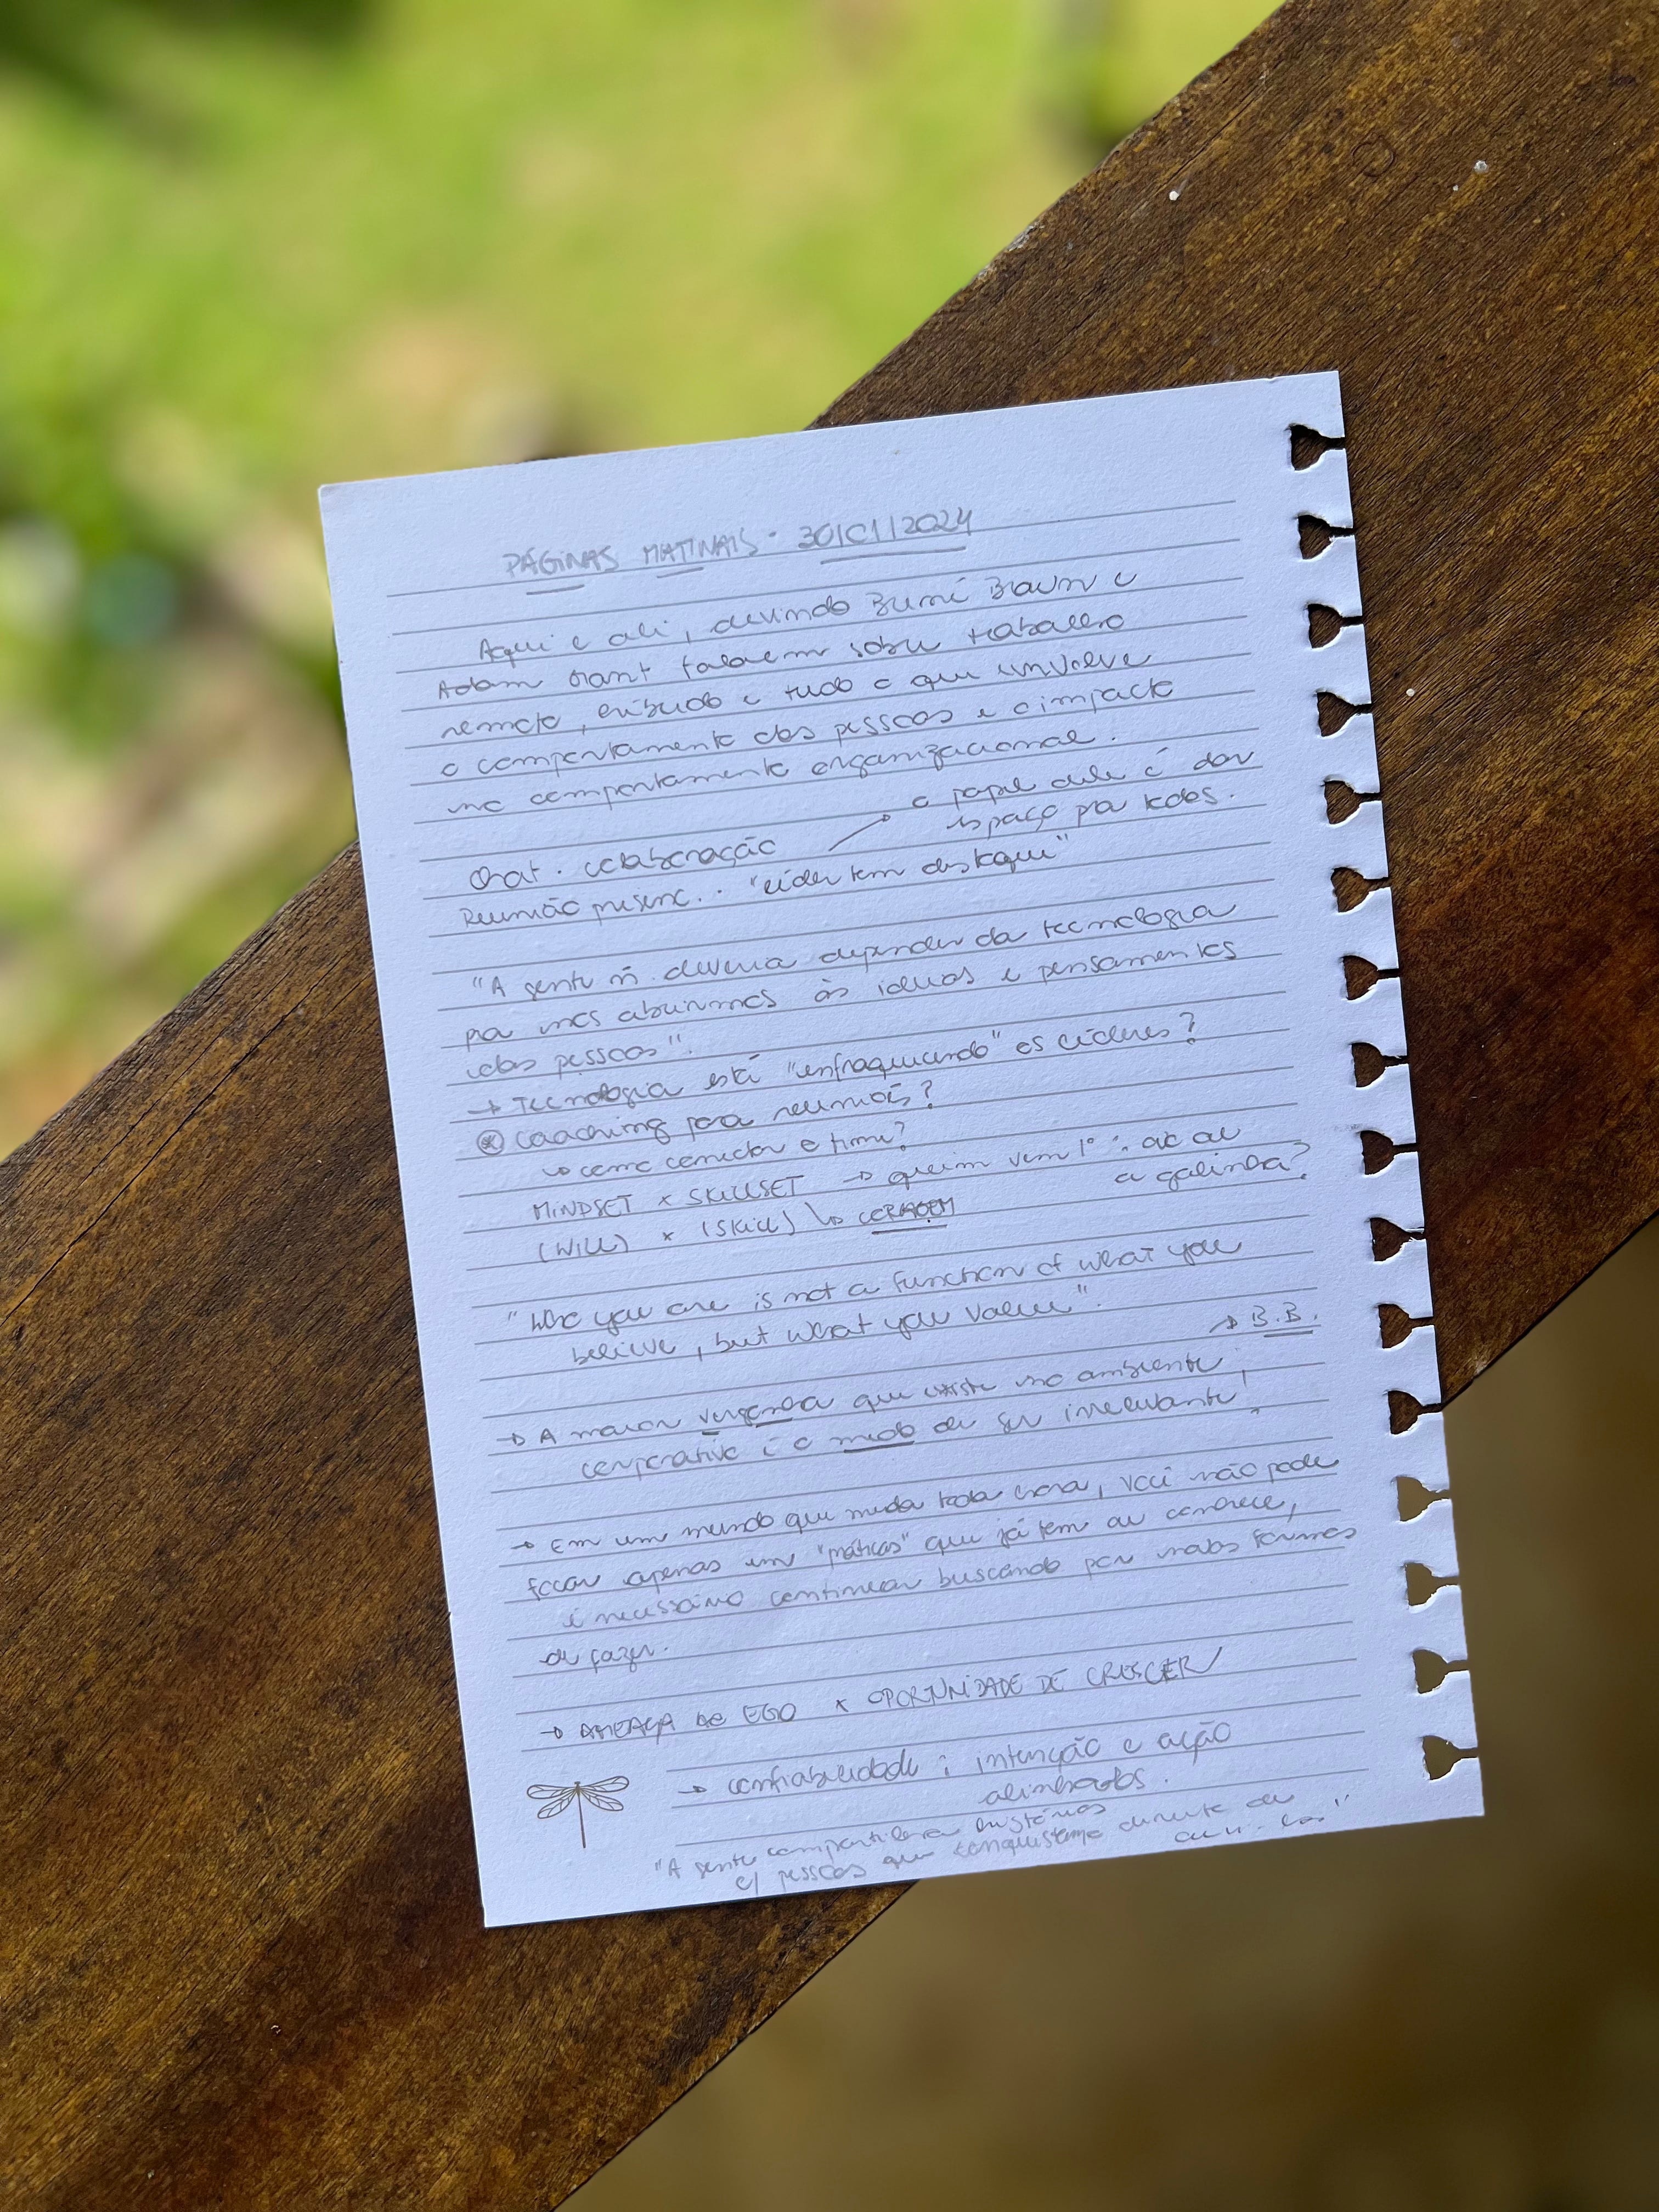 PÁGINAS MATINAIS · 30/01/2024
Aqui e ali, ouvindo Brené Brown e
Adam Grant falarem sobre trabalho
remoto, híbrido e tudo o que envolve
o comportamento das pessoas e o impacto
no comportamento organizacional.
o papel dele é dar
espaço pra todos.
Chat · colaboração
Reunião presenc. · "líder tem destaque"
"A gente ñ deveria depender da tecnologia
pra nos abrirmos às ideias e pensamentos
das pessoas".
→ Tecnologia está "enfraquecendo" os líderes?
* Coaching para reuniões?
↳ como conectar o time?
MINDSET x SKILLSET → quem vem 1º:
a galinha?
(WILL) x (SKILL) ↳ CORAGEM
"Who you are is not a function of what you
believe, but what you value".
→ B.B.
→ A maior vergonha que existe no ambiente
corporativo é o medo de ser irrelevante!
→ Em um mundo que muda toda hora, você não pode
focar apenas em "práticas" que já tem ou conhece,
é necessário continuar buscando por novas formas
de fazer.
→ AMEAÇA DE EGO x OPORTUNIDADE DE CRESCER
→ confiabilidade: intenção e ação
alinhados.
"A gente compartilha histórias
c/ pessoas que direito de